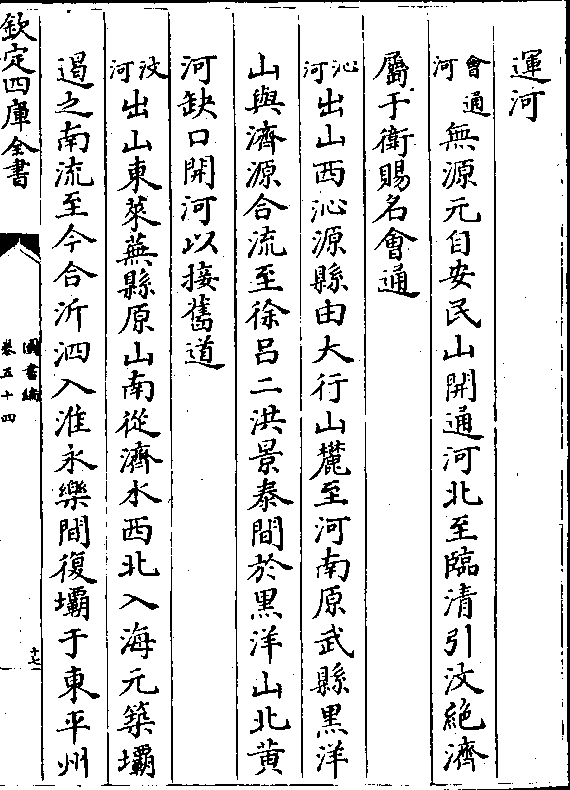 運河
會通河無源元自安民山開通河北至臨清引汶絶濟
屬于衛賜名會通
沁河出山西沁源縣由大行山麓至河南原武縣黒洋
山與濟源合流至徐吕二洪景泰間於黒洋山北黄
河缺口開河以接舊道
汶河出山東萊蕪縣原山南從濟水西北入海元築壩
遏之南流至今合沂泗入淮永樂間復壩于東平州
欽定四庫全書
圖書編
卷五十四
十七